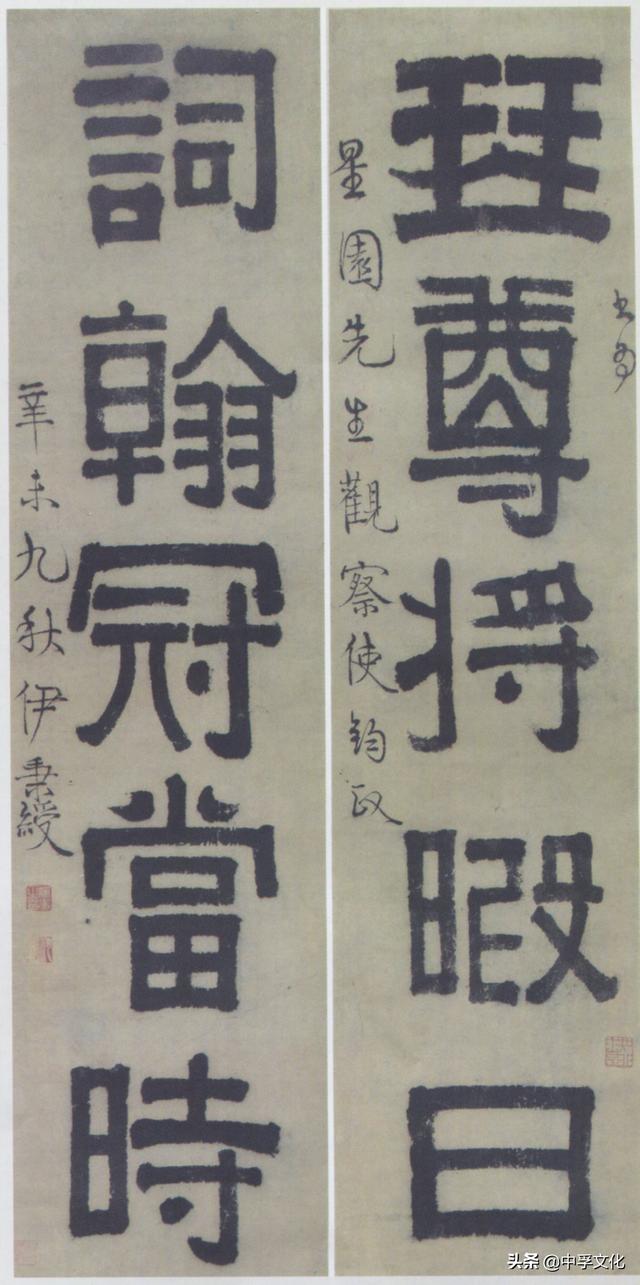 書為
琴尊將暇日
星園先生觀察使鈞政
詞翰冠當時
辛未九秋伊秉綬
头条 @中孚文化